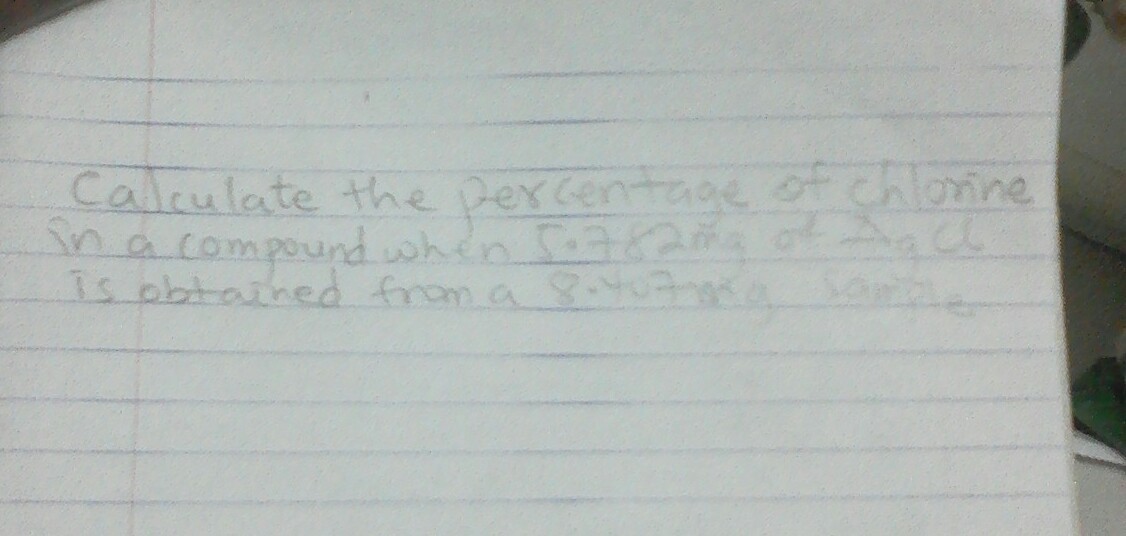 Calculate the percentage of chlorine
in a compound when 5.782mg of AgCl
is obtained from a 8.407mg sample